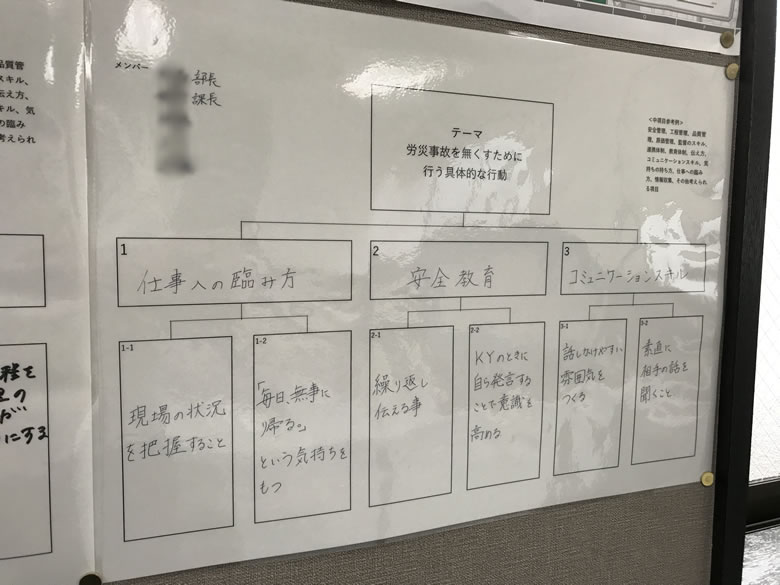 品質管
スキル、
伝え方、
キル、気
の臨み
考えられ
程を
にする
メンバー
部長
課長
テーマ
労災事故を無くすために
行う具体的な行動
<中項目参考例>
安全管理、工程管理、品質管
理、原価管理、監督のスキル、
連携体制、教育体制、伝え方、
コミュニケーションスキル、気
持ちの持ち方、仕事への臨み
方、情報収集、その他考えられ
る項目
1
仕事への臨み方
2
安全教育
3
コミュニケーションスキル
1-1
現場の状況
を把握すること
1-2
「毎日、無事に
帰る。」
という気持ちを
もつ
2-1
繰り返し
伝える事
2-2
KYのときに
自ら発言する
ことで意識を
高める
3-1
話しかけやすい
雰囲気を
つくる
3-2
素直に
相手の話を
聞くこと